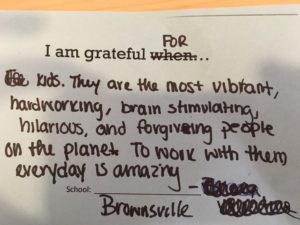 FOR
I am grateful when...
kids. They are the most vibrant,
hardworking, brain stimulating,
hilarious, and forgiving people
on the planet. To work with them
everyday is amazing -
School:
Brownsville